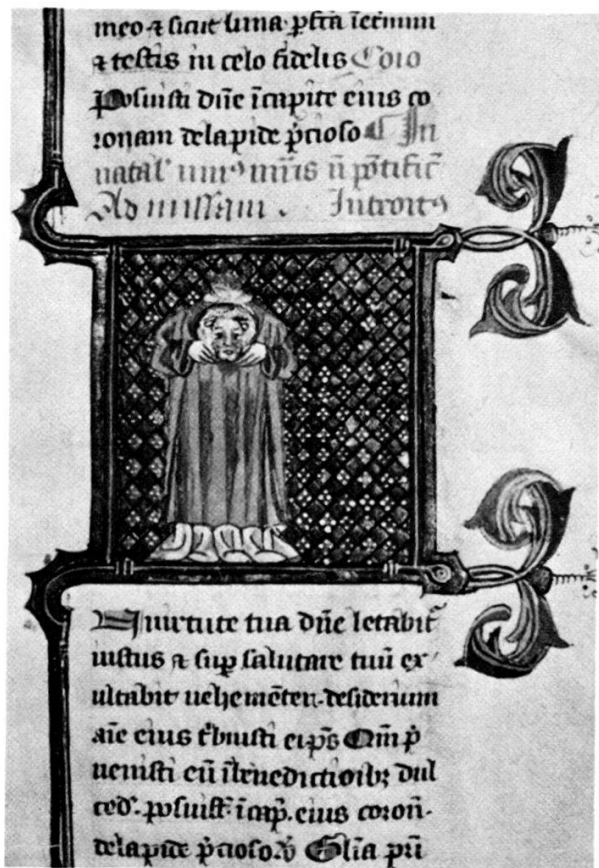 meo ⁊ sicut luna ꝑfc̄a ī eternum
⁊ testis in celo fidelis Co͞io
Posuisti dn̄e ī capite eius co
ronam de lapide p̄cioso In
natal' uni⁹ mr̄is ⁊ pōtific̄
Ad missam. Introit⁹
In uirtute tua dn̄e letabit᷑
iustus ⁊ sup̱ salutare tuū ex
ultabit uehementer. desiderium
aīe eius t̄buisti ei p̄s Qm̄ p̄
uenisti eū ī benedictioib⁊ dul
ced'. posuist' ī cap̄. eius coron̄.
de lapide p̄cioso. V̄ Glīa pr̄i